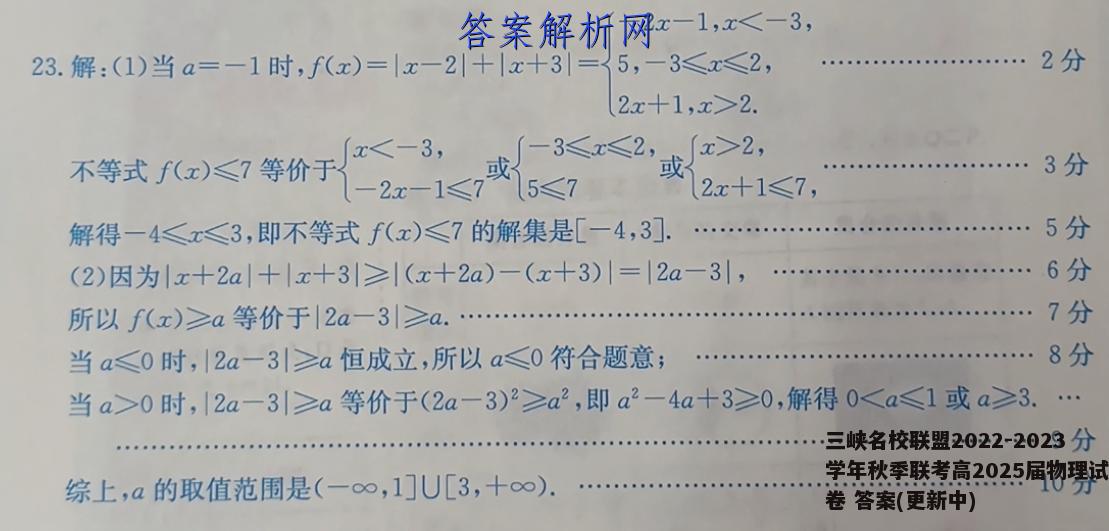 答案解析网
2x−1,x<−3,
23.解:(1)当a=−1时,f(x)=|x−2|+|x+3|={5,−3≤x≤2, …………………… 2分
2x+1,x>2.
不等式 f(x)≤7 等价于{x<−3, −2x−1≤7 或{−3≤x≤2, 5≤7 或{x>2, 2x+1≤7, …………………… 3分
解得−4≤x≤3,即不等式 f(x)≤7 的解集是[−4,3]. …………………………… 5分
(2)因为|x+2a|+|x+3|≥|(x+2a)−(x+3)|=|2a−3|, …………………… 6分
所以 f(x)≥a 等价于|2a−3|≥a. …………………………………………… 7分
当a≤0时,|2a−3|≥a 恒成立,所以a≤0符合题意; …………………………… 8分
当a>0时,|2a−3|≥a 等价于(2a−3)²≥a²,即 a²−4a+3≥0,解得 0<a≤1 或 a≥3. …
……………………………………………………………… 9分
综上,a 的取值范围是(−∞,1]∪[3,+∞). …………………………………… 10分
三峡名校联盟2022-2023
学年秋季联考高2025届物理试
卷 答案(更新中)